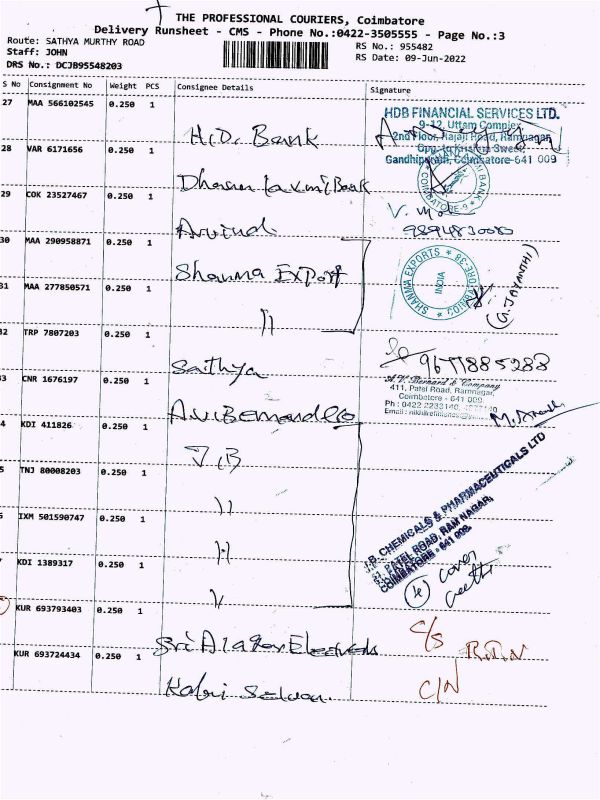 THE PROFESSIONAL COURIERS, Coimbatore
Delivery Runsheet - CMS - Phone No.:0422-3505555 - Page No.:3
Route: SATHYA MURTHY ROAD
Staff: JOHN
DRS No.: DCJB95548203
RS No.: 955482
RS Date: 09-Jun-2022
S No Consignment No Weight PCS Consignee Details Signature
27 MAA 566102545 0.250 1 H.D. Bank
HDB FINANCIAL SERVICES LTD.
9-12, Uttam Complex
2nd Floor, Rajaji Road, Ramnagar
Gandhipuram, Coimbatore-641 009
28 VAR 6171656 0.250 1 Dhanalaxmi Bank
BANK
COIMBATORE-9
29 COK 23527467 0.250 1 Arvind
30 MAA 290958871 0.250 1 Shanma Export
SHANMA EXPORTS
COIMBATORE-38
INDIA
(G.JAYANTHI)
31 MAA 277850571 0.250 1 "
32 TRP 7807203 0.250 1 Sathya
9677885288
3 CNR 1676197 0.250 1 A.V. Bernard & Co
A.V. Bernard & Company
411, Patel Road, Ramnagar,
Coimbatore - 641 009.
Ph : 0422 2232140,
Email :
4 KDI 411826 0.250 1 J.B
5 TNJ 80008203 0.250 1 "
J.B. CHEMICALS & PHARMACEUTICALS LTD
PATEL ROAD, RAM NAGAR,
COIMBATORE - 641 009.
IXM 501590747 0.250 1 "
KDI 1389317 0.250 1 "
cover
KUR 693793403 0.250 1 Sri Alager Electricals
C/S R.T.N
KUR 693724434 0.250 1 Kabi Selvan
C/N